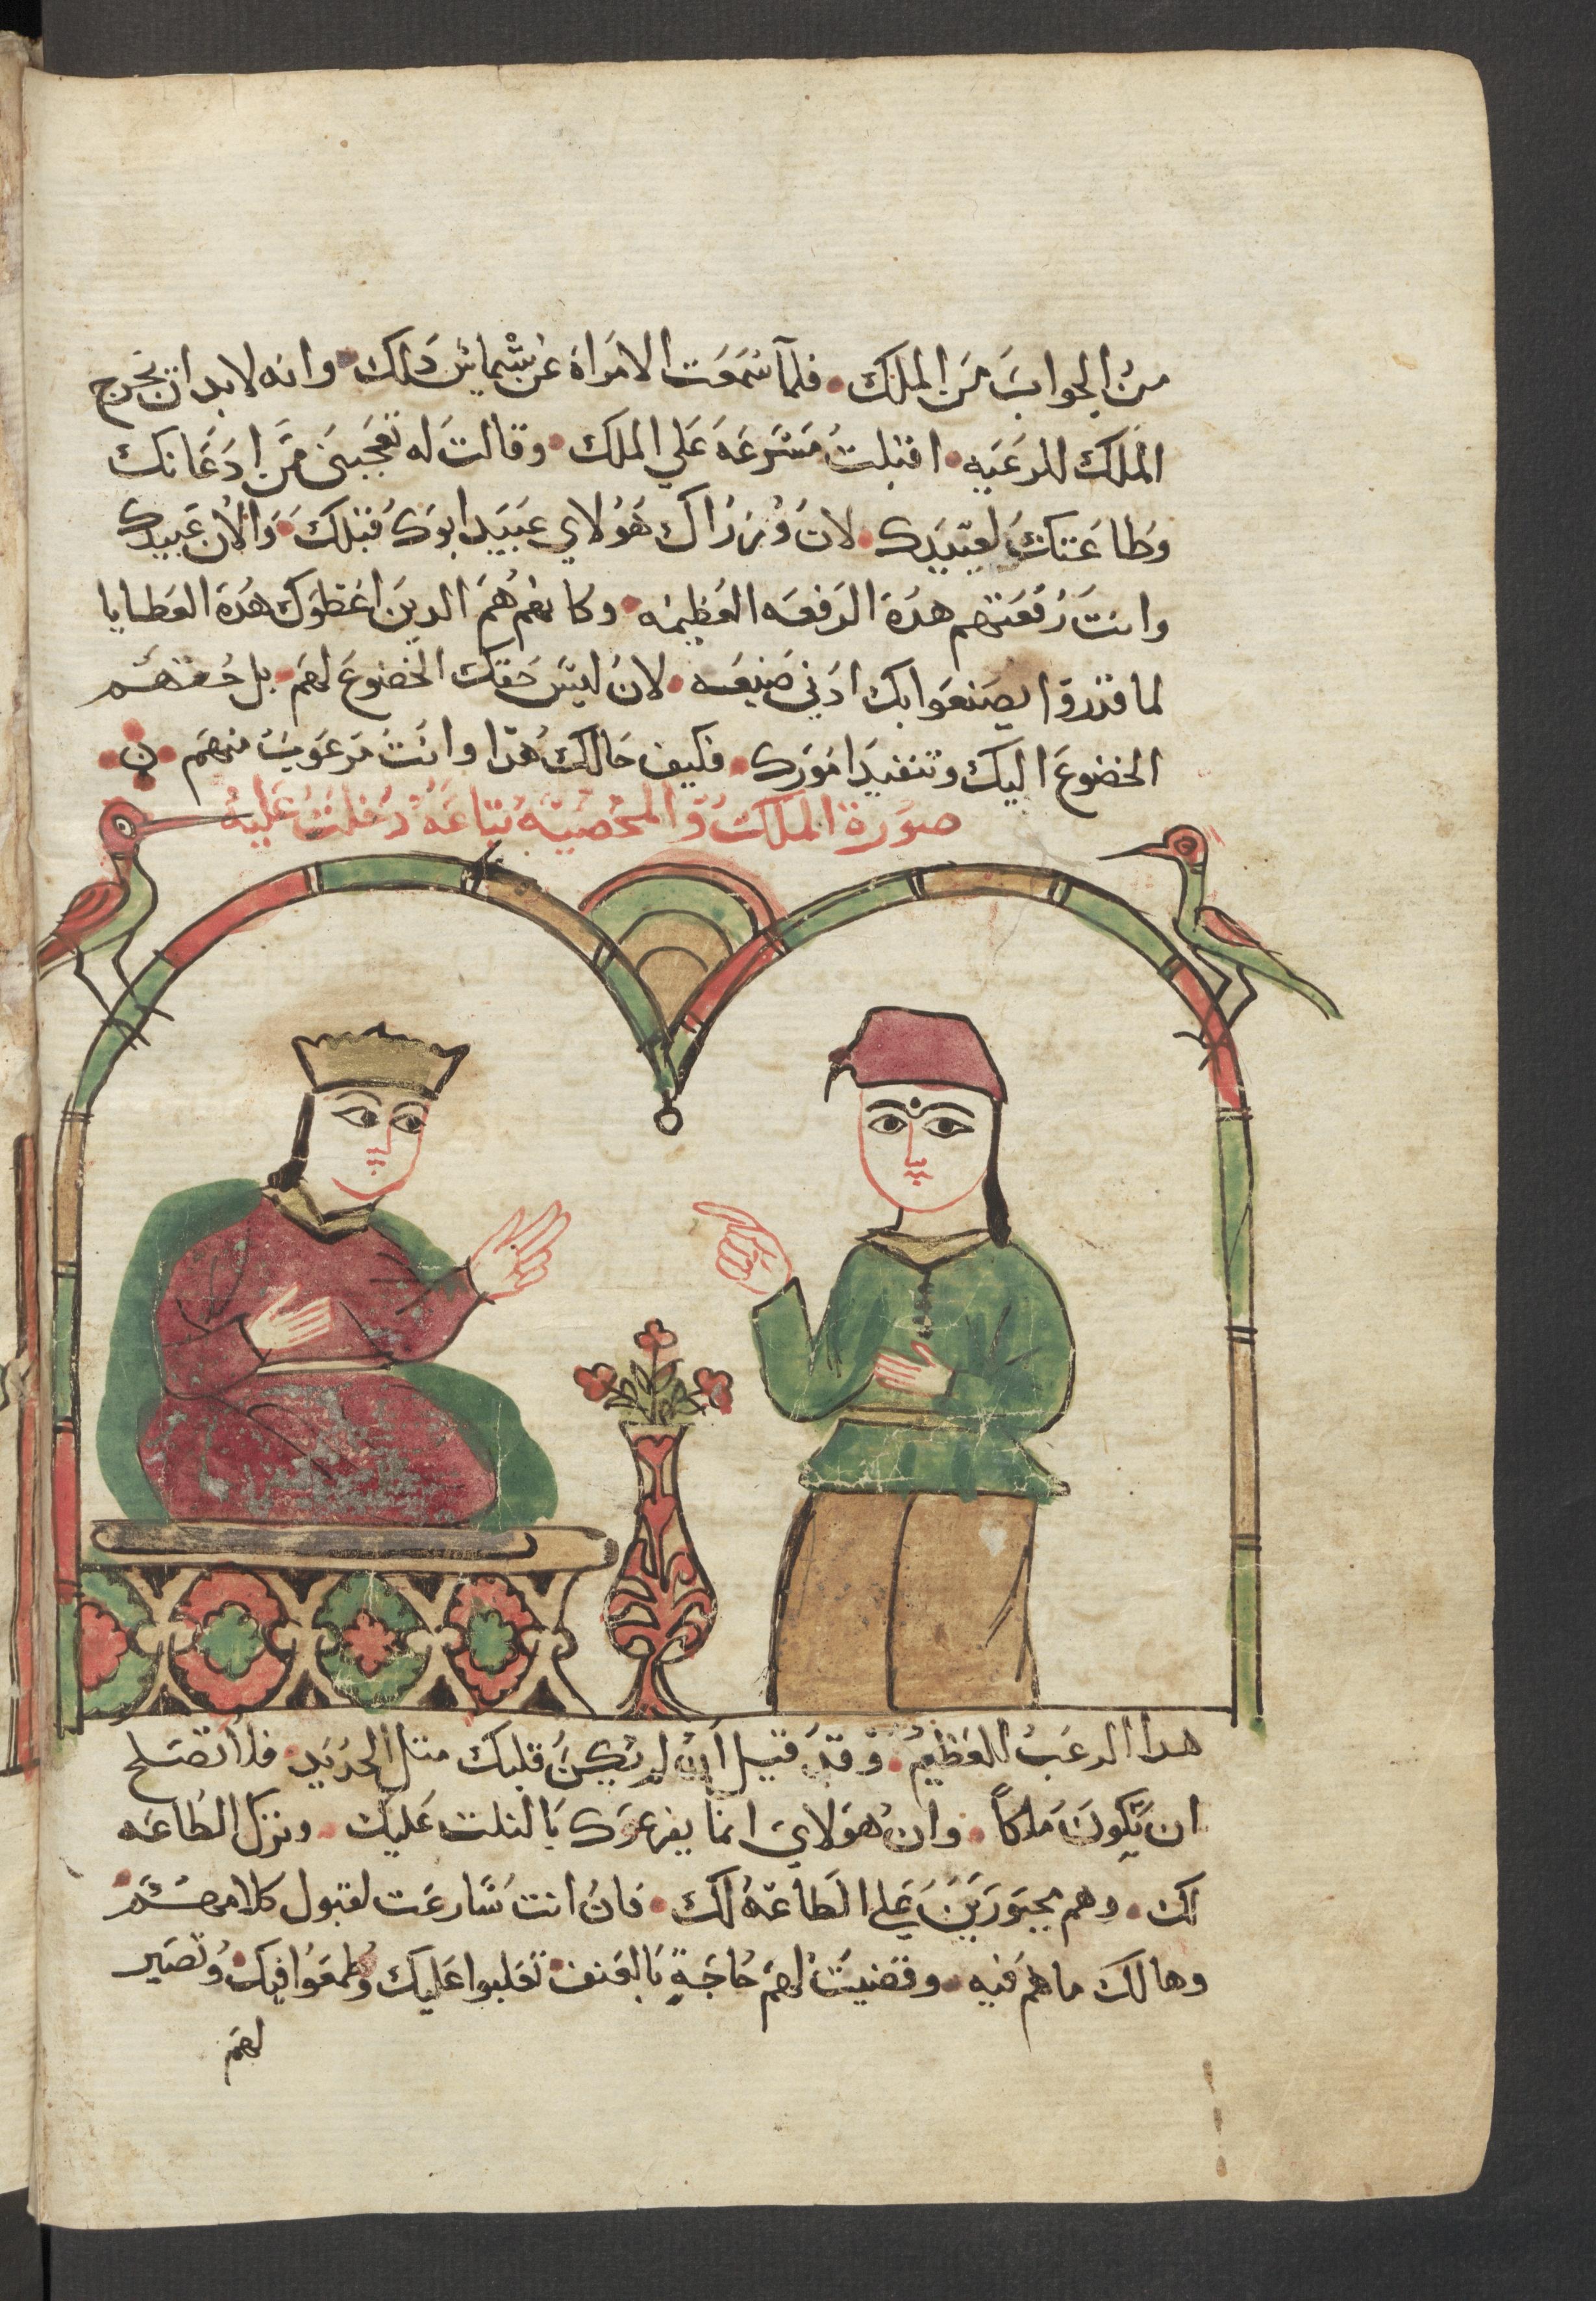 من الجواب من الملك. فلما سمعت الامراة عن شيماس دلك. وانه لابد ان يخرج
الملك للرعيه. اقبلت مسرعه علي الملك. وقالت له تعجبني من ادعانك
وطاعتك لعبيدك. لان وزراك هولاي عبيد ابوك قبلك. والان عبيدك
وانت رفعتهم هده الرفعه العظيمه. وكانهم هم الدين اعطوك هده العطايا
لما قدروا يصنعوا بك ادني صنيعه. لان ليس حقك الخضوع لهم. بل حقهم
الخضوع اليك وتنفيد امورك. فكيف حالك هدا وانت مرعوب منهم.
صورة الملك والمحضية بتاعه دخلت عليه
هدا الرعب العظيم. وقد قيل ان لم يكن قلبك متل الحديد. فلا تصلح
ان تكون ملكاً. وان هولاي انما يفزعوك عليك. وترك الطاعه
لك. وهم مجبورين علي الطاعة لك. فان انت سارعت لقبول كلامهم
وهالك ما هم فيه. وقضيت لهم حاجة بالعنف تغلبوا عليك وطمعوا فيك. وتصير
لهم